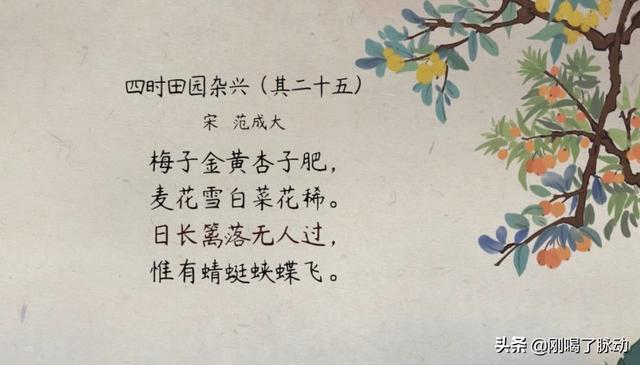 四时田园杂兴（其二十五）
宋 范成大
梅子金黄杏子肥，
麦花雪白菜花稀。
日长篱落无人过，
惟有蜻蜓蛱蝶飞。
头条 @刚喝了脉动